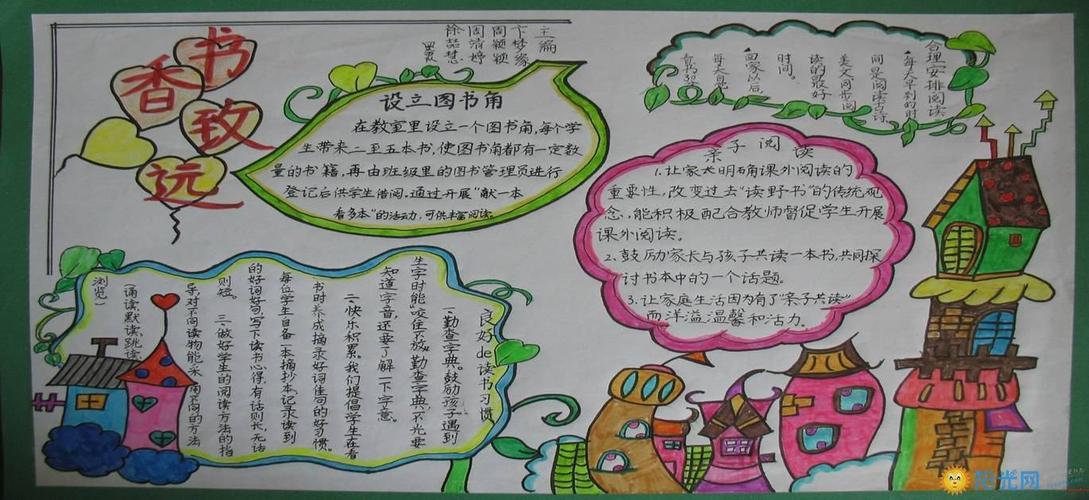 书香致远
主编
卞梦缘
周颖颖
周清婷
徐喆慧
设立图书角
在教室里设立一个图书角,每个学
生带来二至五本书,使图书角都有一定数
量的书籍,再由班级里的图书管理员进行
登记后供学生借阅,通过开展“献一本
看多本”的活动,可供丰富阅读。
合理安排阅读
▲每天早到的时
间是阅读古诗
美文同步阅
读的最好
时间。
▲回家以后
每天自觉
亲子阅读
1.让家长明确课外阅读的
重要性,改变过去“读野书”的传统观
念,能积极配合教师督促学生开展
课外阅读。
2.鼓励家长与孩子共读一本书,共同探
讨书本中的一个话题。
3.让家庭生活因为有了“亲子共读”
而洋溢温馨和活力。
良好de读书习惯
一、勤查字典。鼓励孩子遇到
生字时能“咬住不放”勤查字典,不光要
知道字音,还要了解一下字意。
二、快乐积累。我们提倡学生在看
书时养成摘录好词佳句的好习惯。
每位学生自备一本摘抄本,记录读到
的好词好句,写下读书心得,有话则长,无话
则短。 三、做好学生的阅读方法的指
导,对不同读物能采用不同的方法
(诵读、默读、跳读、
浏览)
阳光网